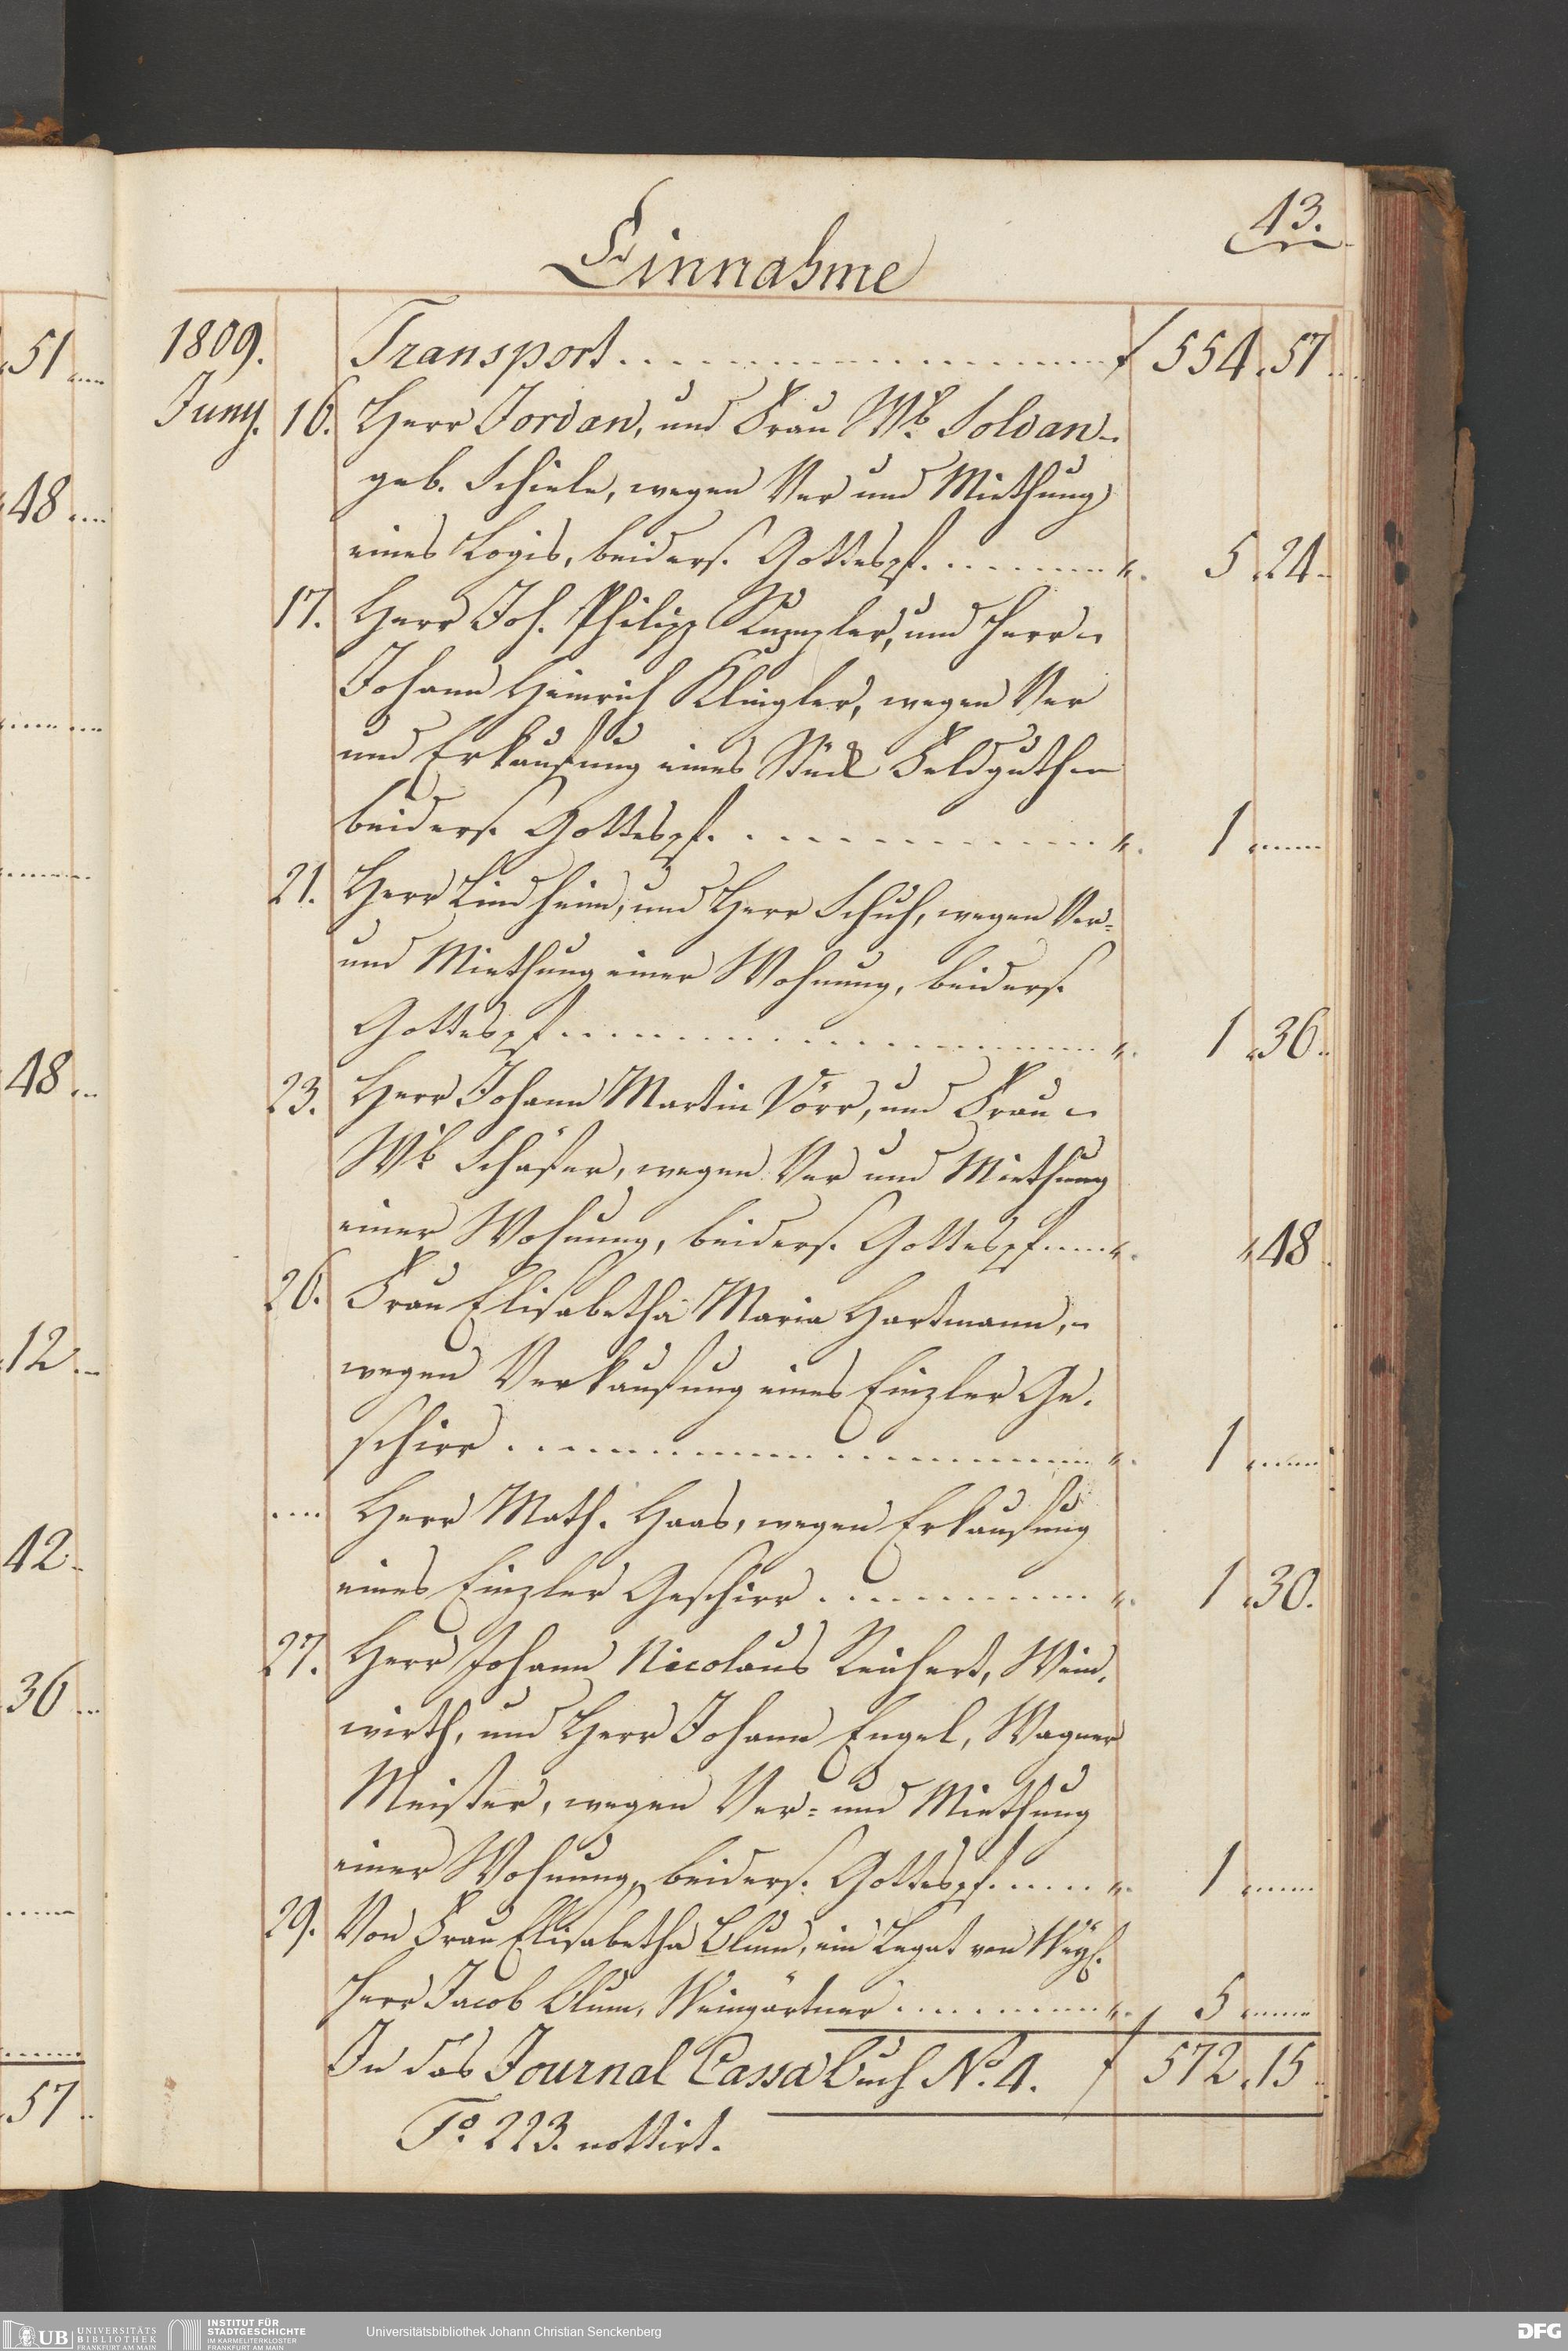 13.
Einnahme
1809. Transport f 554. 57
Juny. 16. Herr Jordan, und Frau Wb. Soldan
geb. Schiele, wegen Ver und Miethung
eines Logis, beiders. Gottespf. 5. 24
17. Herr Joh. Philipp und Herr
Johann Heinrich Klingler, wegen Ver
und Erkaufung eines Stück Feldguth
beiders. Gottespf. 1
21. Herr Lindheim, und Herr Schuh, wegen Ver=
und Miethung einer Wohnung, beiders.
Gottespf. 1. 36
23. Herr Johann Martin Dörr, und Frau
Wb Schäfer, wegen Ver und Miethung
einer Wohnung, beiders. Gottespf. 48
26. Frau Elisabetha Maria Hartmann,
wegen Verkaufung eines Einzler Ge.
schirr 1
Herr Math. Haas, wegen Erkaufung
eines Einzler Geschirr 1. 30.
27. Herr Johann Nicolaus Reichert, Wein,
wirth, und Herr Johann Engel, Wagner
Meister, wegen Ver= und Miethung
einer Wohnung, beiders. Gottespf. 1
29. Von Frau Elisabetha Blum, ein Legat von
Herr Jacob Blum, Weingärtner 5
In das Journal Cassa Buch No. 4. f 572. 15
Fo. 223. nottirt.
51
48
48
12
42
36
57
UB UNIVERSITÄTS
BIBLIOTHEK
FRANKFURT AM MAIN
INSTITUT FÜR
STADTGESCHICHTE
IM KARMELITERKLOSTER
FRANKFURT AM MAIN
Universitätsbibliothek Johann Christian Senckenberg
DFG